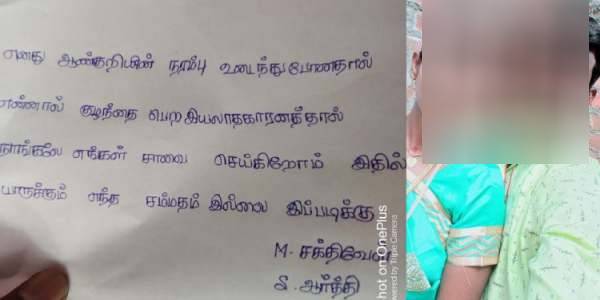 எனது ஆண்குறியின் நரம்பு உடைந்துபோனதால்
என்னால் குழந்தை பெற இயலாதகாரனத்தால்
நாங்கலே எங்கள் சாவை செய்கிறோம் இதில்
யாருக்கும் எந்த சம்மதம் இல்லை இப்படிக்கு
M. சக்திவேல்
S. ஆர்த்தி
Shot on OnePlus
Powered by Triple Camera